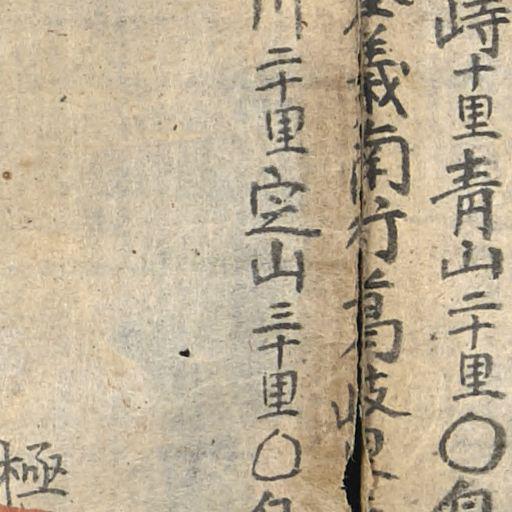 峙十里青山二十里〇自
義南行葛岐
川二十里定山三十里〇自
極